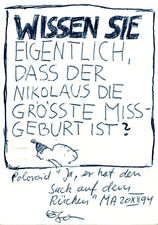 WISSEN SIE
EIGENTLICH,
DASS DER
NIKOLAUS DIE
GRÖSSTE MISS-
GEBURT IST?
Polaroid "Ja, er hat den
Sack auf dem
Rücken" MA 20XII94